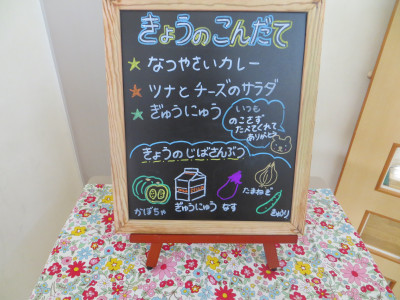 きょうのこんだて
★なつやさいカレー
★ツナとチーズのサラダ
★ぎゅうにゅう
いつも
のこさず
たべてくれて
ありがとう
きょうのじばさんぶつ
かぼちゃ
ぎゅうにゅう
なす
たまねぎ
きゅうり